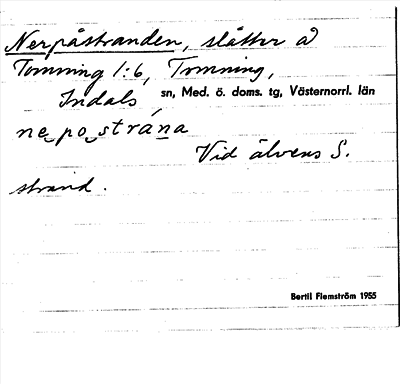 Nerpåstranden, slåtter å
Tomming 1:6, Tomming,
Indals sn, Med. ö. doms. tg, Västernorrl. län
ne͜ po͜ strána
Vid älvens S.
strand.
Bertil Flemström 1955